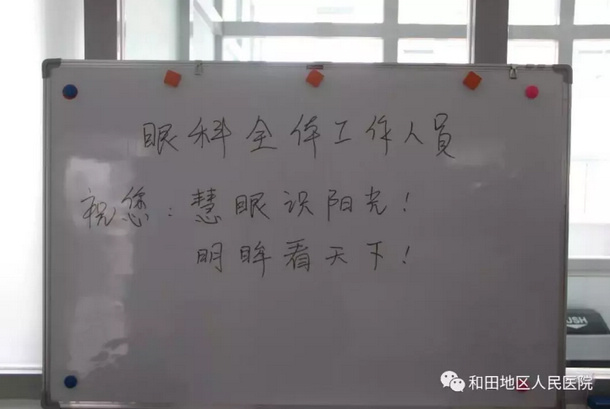 眼科全体工作人员
祝您：慧眼识阳光！
明眸看天下！
USH
和田地区人民医院